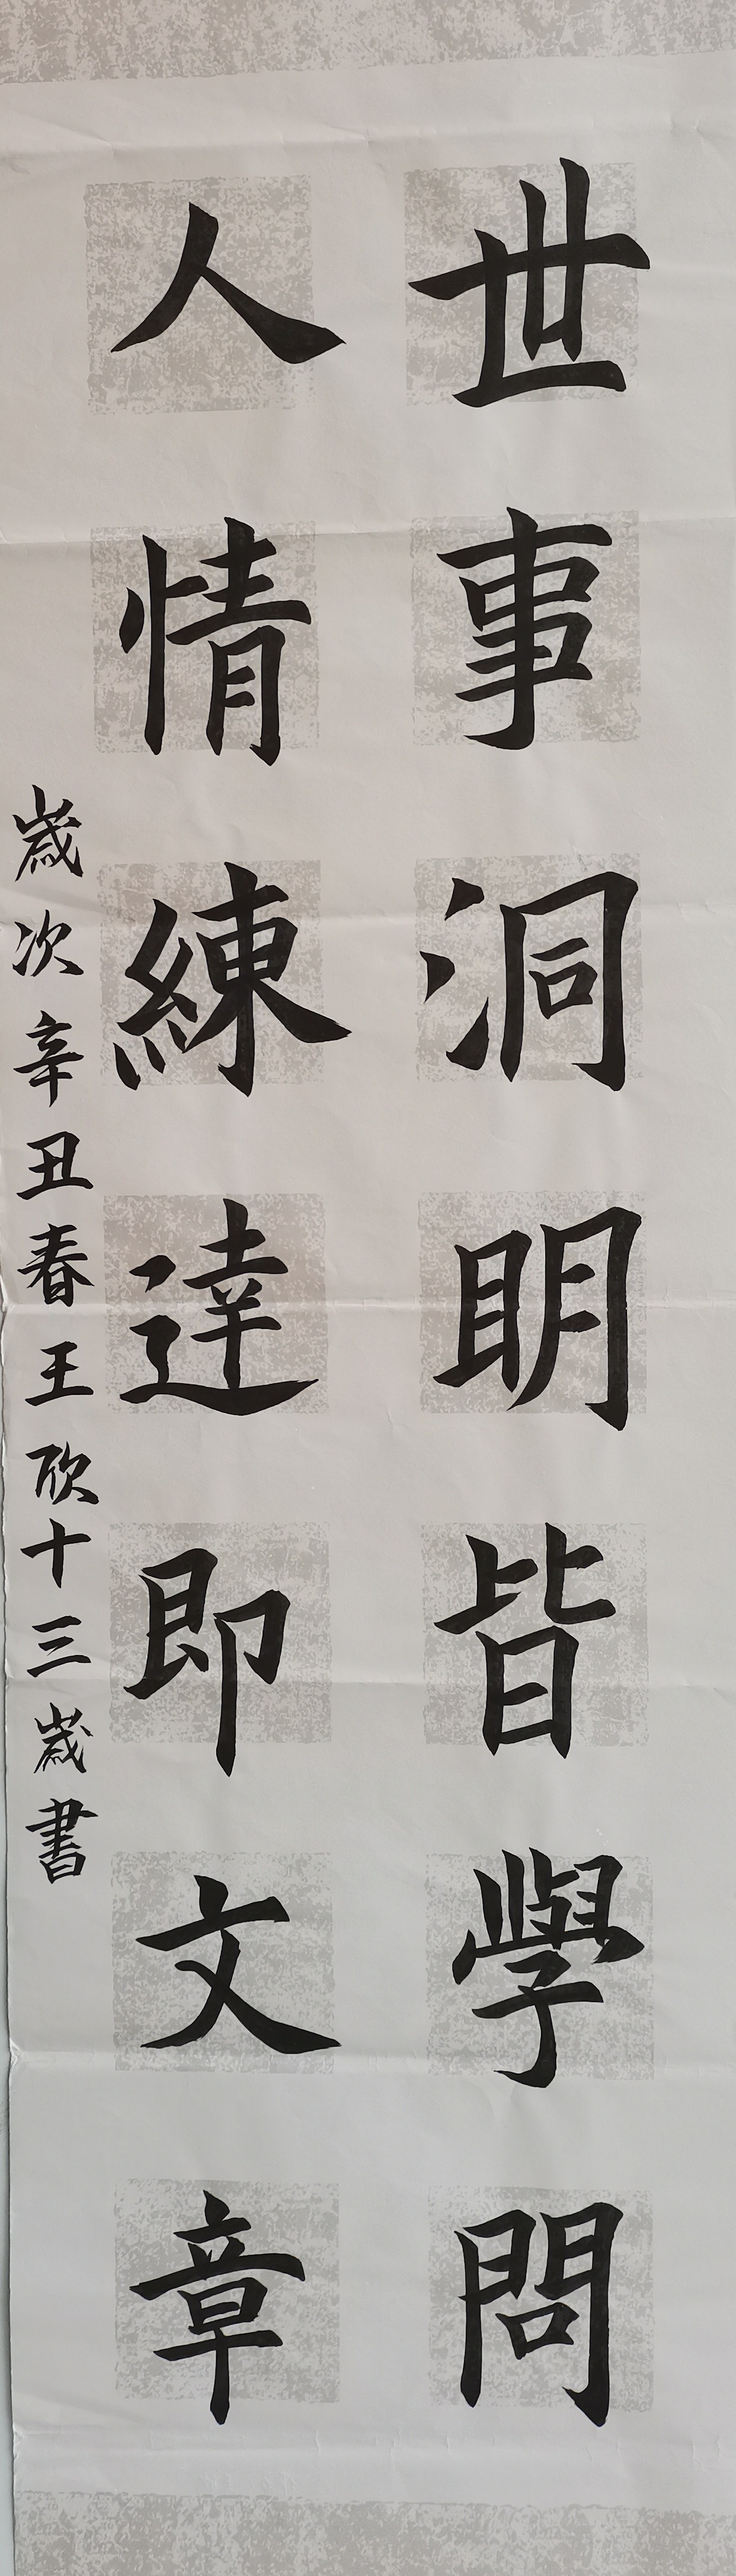 世事洞明皆學問
人情練達即文章
歲次辛丑春王欣十三歲書